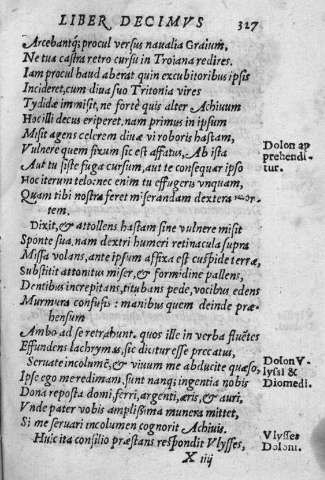 LIBER DECIMVS 327
Arcebantq; procul versus naualia Graium,
Ne tua castra retro cursu in Troiana redires.
Iam procul haud aberat quin excubitoribus ipsis
Incideret, cum diua suo Tritonia vires
Tydidæ immisit, ne fortè quis alter Achiuum
Hoc illi decus eriperet, nam primus in ipsum
Misit agens celerem diuæ vi roboris hastam,
Vulnere quem fixum sic est affatus, Ab ista
Aut tu siste fuga cursum, aut te consequar ipso
Hoc iterum telo: nec enim tu effugeris vnquam,
Quam tibi nostra feret miserandam dextera mor-
tem.
Dolon ap
prehendi-
tur.
Dixit, & attollens hastam sine vulnere misit
Sponte sua, nam dextri humeri retinacula supra
Missa volans, ante ipsum affixa est cuspide terræ,
Substitit attonitus miser, & formidine pallens,
Dentibus increpitans, titubans pede, vocibus edens
Murmura confusis: manibus quem deinde præ-
hensum
Ambo ad se retrahunt. quos ille in verba fluẽtes
Effundens lachrymas, sic dictur esse precatus,
Seruate incolumẽ, & viuum me abducite quæso,
Ipse ego me redimam, sunt nanq; ingentia nobis
Dona reposta domi, ferri, argenti, æris, & auri,
Vnde pater vobis amplissima munera mittet,
Si me seruari incolumen cognorit Achiuis.
Dolon V-
lyssi &
Diomedi.
Huic ita consilio præstans respondit Vlysses,
Vlysses
Doloni.
X iiij